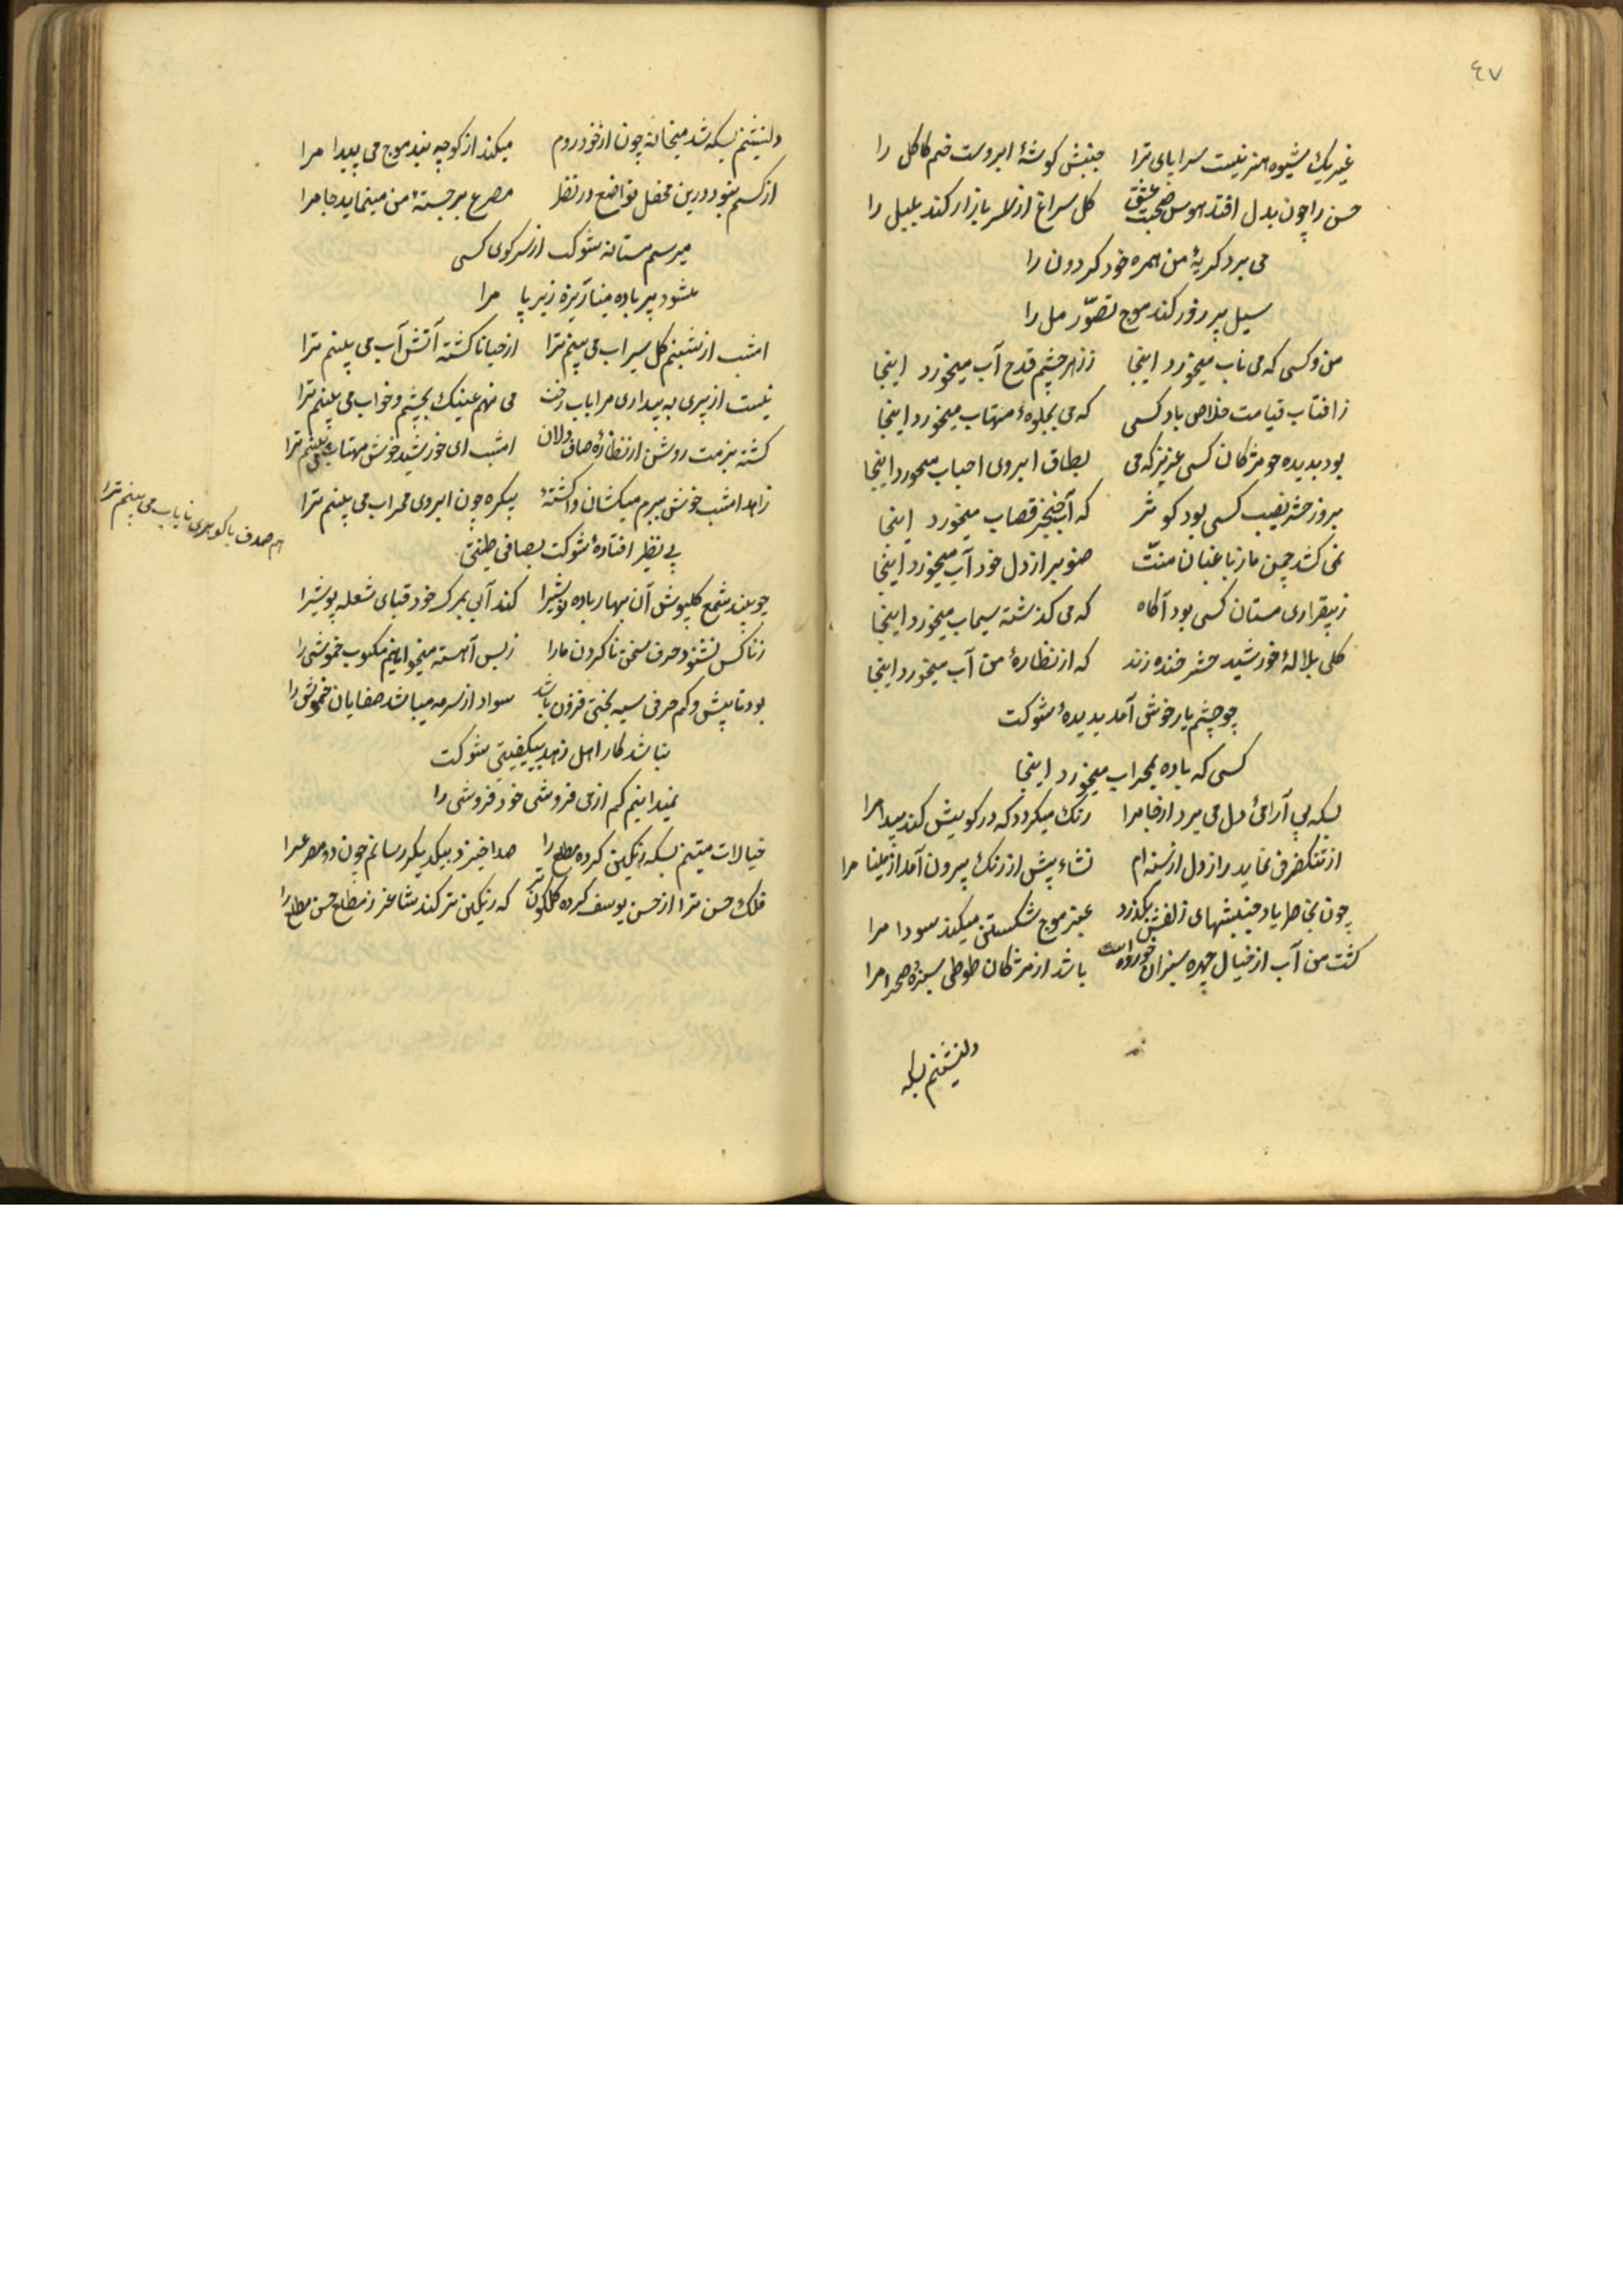 ٤٧
غیر یک شیوه هنر نیست سراپای ترا جنبش کوشهٔ ابروست خم کاکل را
حسن را چون بدل افتد هوس صحبت عشق کل سراغ از سر بازار کند بلبل را
می برد کریهٔ من همره خود کردون را
سیل پر زور کند موج تصوّر مل را
من و کسی که می ناب میخورد اینجا ز زهر چشم قدح آب میخورد اینجا
ز افتاب قیامت خلاص باد کسی که می بجلوهٔ مهتاب میخورد اینجا
بود بدیده چو مژکان کسی عزیز که می بطاق ابروی احباب میخورد اینجا
بروز حشر نصیب کسی بود کوثر که آب خنجر قصاب میخورد اینجا
نمی کشد چمن ما ز باغبان منّت صنوبر از دل خود آب میخورد اینجا
ز بیقراری مستان کسی بود آکاه که می کذشته سیماب میخورد اینجا
کلی بلالهٔ خورشید حشر خنده زند که از نظارهٔ من آب میخورد اینجا
چو چشم یار خوش آمد بدیدهٔ شوکت
کسی که باده بمحراب میخورد اینجا
بسکه بی آرامئ دل می برد از جا مرا رنک میکردد که در کویش کند پیدا مرا
از تنک ظرفی نماید راز دل از سینه ام نشاء پیش از رنک بیرون آمد از مینا مرا
چون بخاطر یاد جنبشهای زلفش بکذرد عنبر موج شکستن میکند سودا مرا
کشت من آب از خیال چهره سبزان خورده است باشد از مژکان طوطی سبزهٔ صحرا مرا
دلنشینم بسکه
دلنشینم بسکه شد میخانه چون از خود روم میکند از کوچه بند موج می پیدا مرا
از کسم نبود درین محفل تواضع در نظر مصرع برجستهٔ من مینماید جا مرا
میرسم مستانه شوکت از سر کوی کسی
میشود پر باده مینا آبزهٔ زیر پا مرا
امشب از شبنم کل سیراب می بینم ترا از حیا ناکشته آتش آب می بینم ترا
نیست از پیری به بیداری مرا باب رخت می نهم عینک بچشم و خواب می بینم ترا
کشته بزمت روشن از نظارهٔ صاف دلان امشب ای خورشید خوش مهتاب می بینم ترا
زاهد امشب خوش ببرم میکشان واکشتهٔ یکره چون ابروی محراب می بینم ترا
بی نظیر افتادهٔ شوکت بصافی طینتی
هم صدف با کوهری نایاب می بینم ترا
چو بیند شمع کلپوش آن بهار باده نوشیرا کند آبی بمرک خود قبای شعله پوشیرا
ز ناکس نشنود حرف سخن ناکردن ما را ز بس آهسته میخوانیم مکتوب خموشی را
بود تا پیش و کم حرفی سیه بختی فزون باشد سواد از سرمه میباشد صفایان خموشی را
نباشد کار اهل زهد بیکیفیتی شوکت
نمیدانیم کم از می فروشی خود فروشی را
خیالات متینم بسکه رنکین کرده مطلع را صدا خیزد بیکدیکر رسانم چون دو مصرعرا
فلک حسن ترا از حسن یوسف کرده کلکون تر که رنکین تر کند شاعر ز مطلع حسن مطلع را